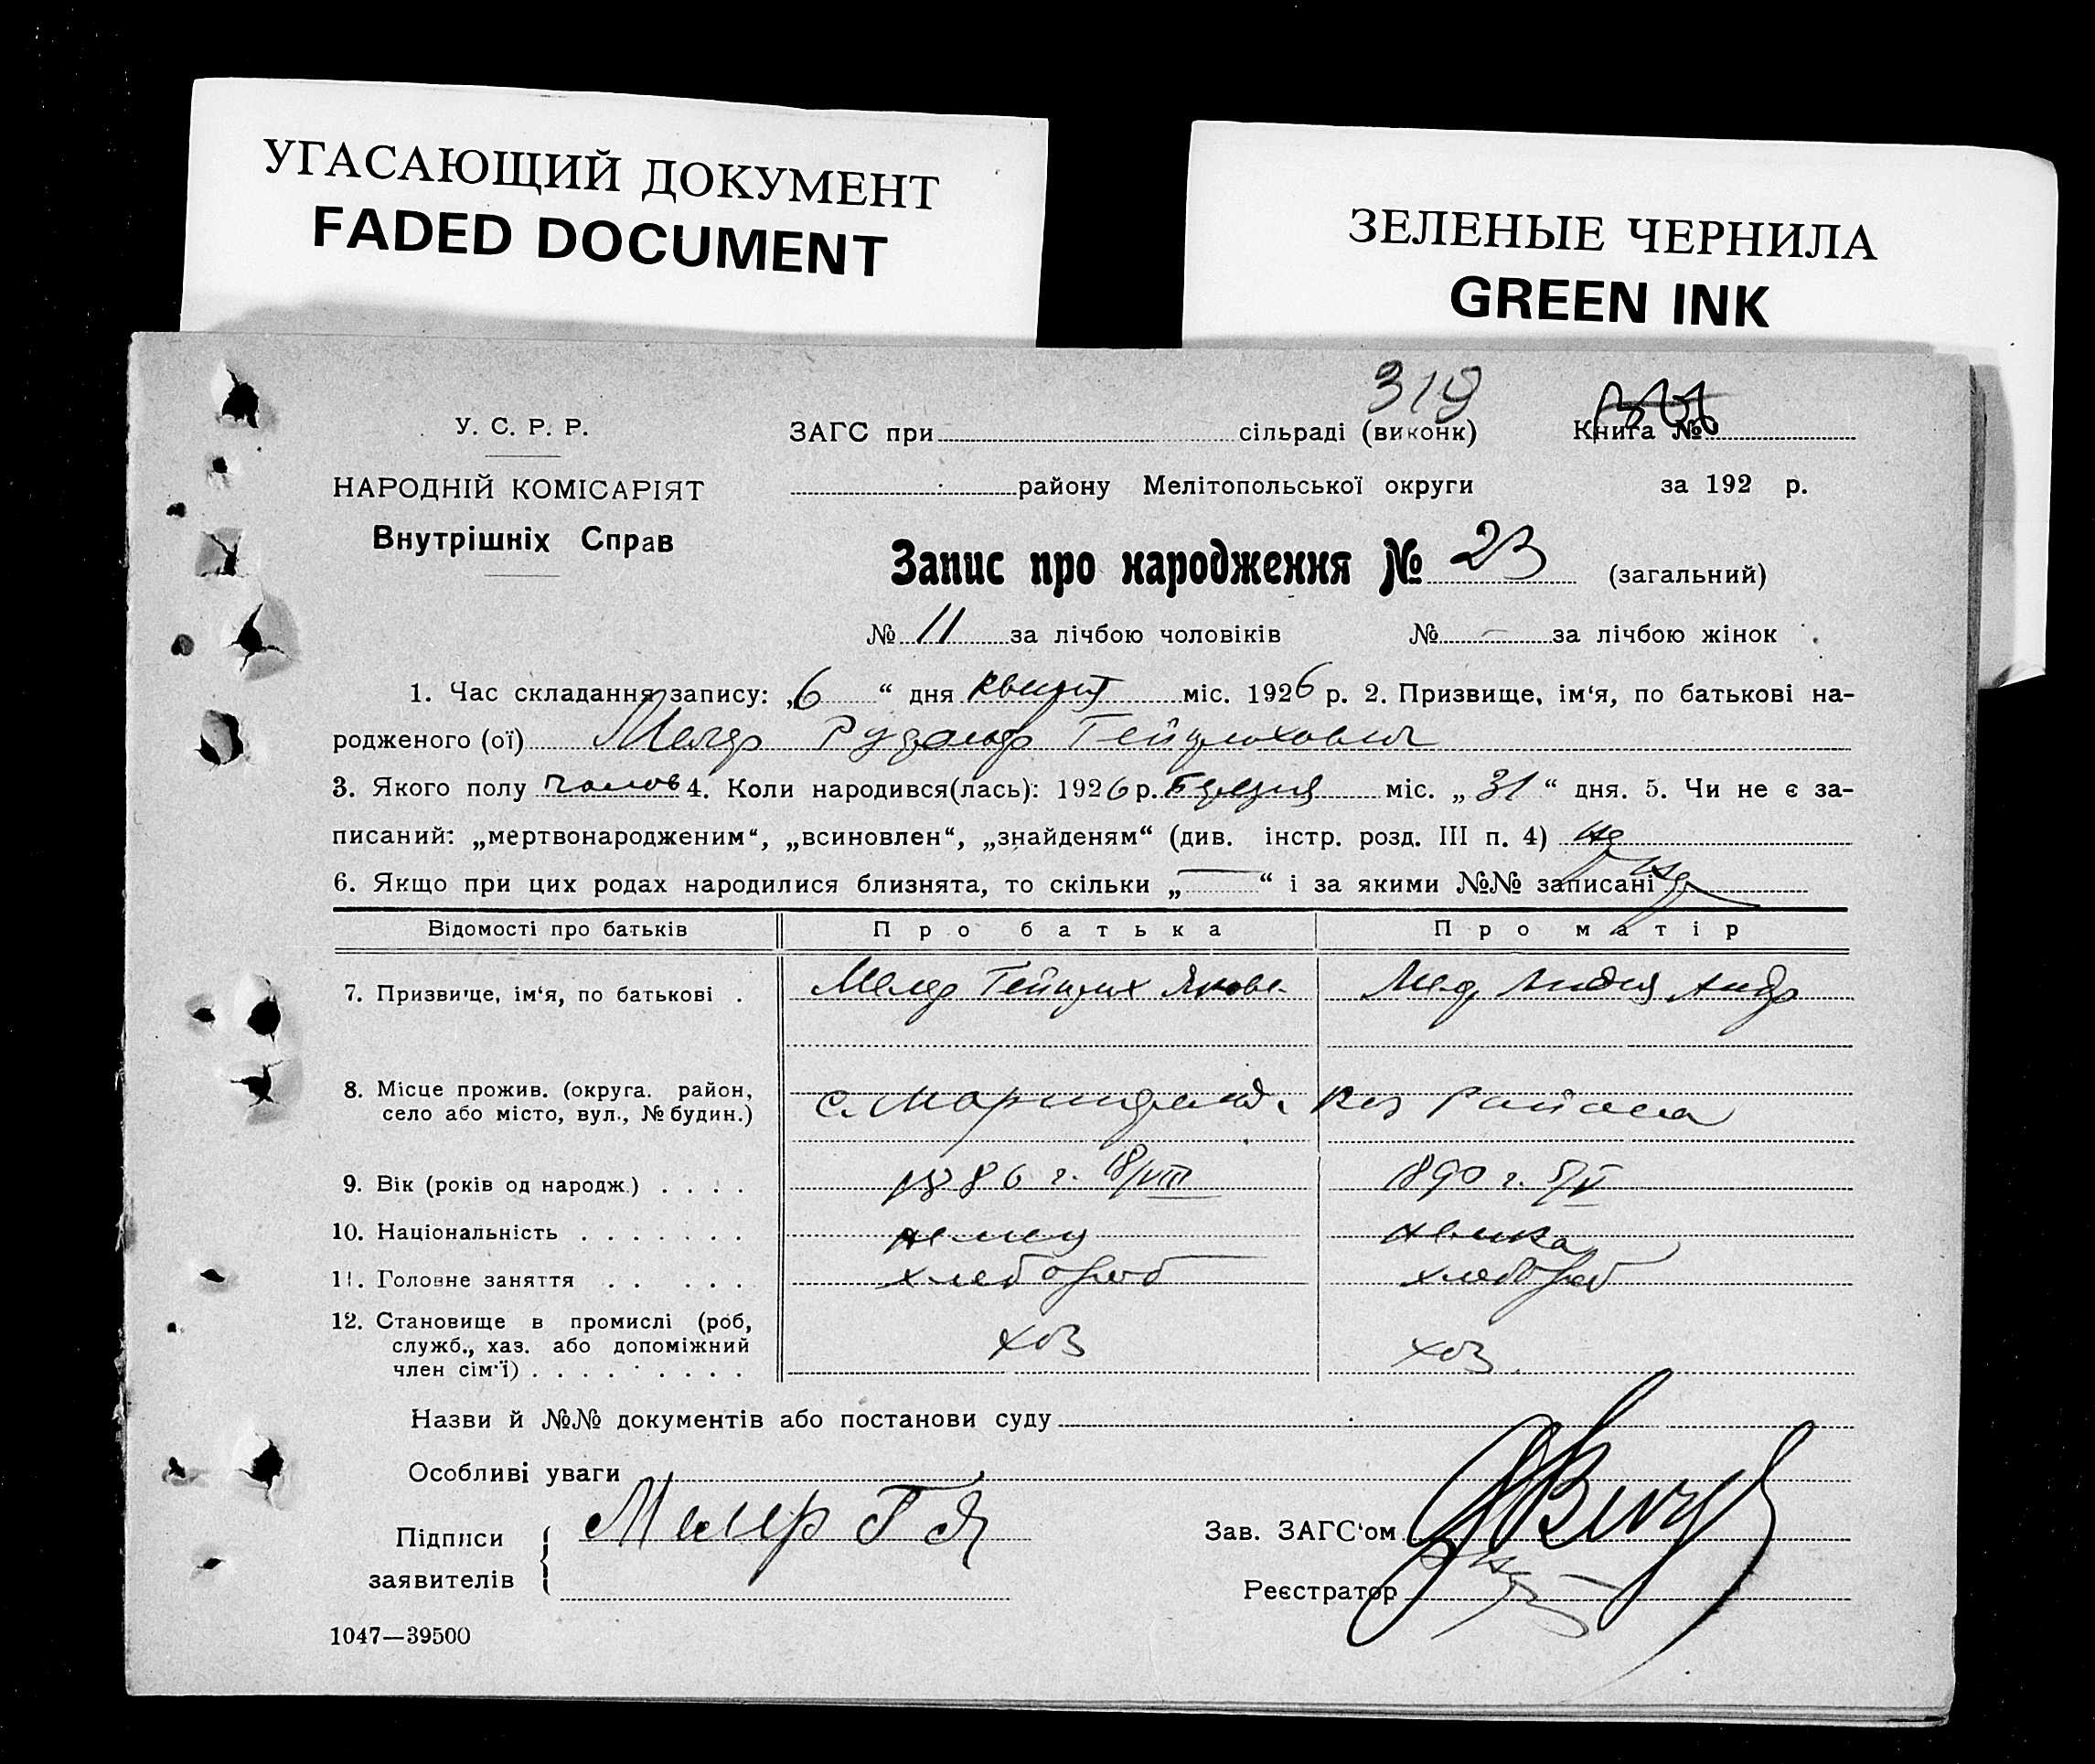 УГАСАЮЩИЙ ДОКУМЕНТ
FADED DOCUMENT
ЗЕЛЕНЫЕ ЧЕРНИЛА
GREEN INK
319
У. С. Р. Р.
НАРОДНІЙ КОМІСАРІЯТ
Внутрішніх Справ
ЗАГС при сільраді (виконк) Книга №
району Мелітопольської округи за 192 р.
Запис про народження № 23 (загальний)
№ 11 за лічбою чоловіків № — за лічбою жінок
1. Час складання запису: „6“ дня квіт міс. 1926 р. 2. Призвище, ім‘я, по батькові на-
родженого (ої) Мелер Рудольф Гейнрихович
3. Якого полу чолов 4. Коли народився(лась): 1926 р. березня міс. „31“ дня. 5. Чи не є за-
писаний: „мертвонародженим“, „всиновлен“, „знайденям“ (див. інстр. розд. III п. 4) не
6. Якщо при цих родах народилися близнята, то скільки „—“ і за якими №№ записані
Відомості про батьків Про батька Про матір
7. Призвище, ім‘я, по батькові . Мелер Гейнрих Якове Лидия Андр
8. Місце прожив. (округа. район,
село або місто, вул., № будин.)
с. района
9. Вік (років од народж.) . . . . 1886 г. 18/VIII 1890 г. 5/V
10. Національність . . . . . . . немец немка
11. Головне заняття . . . . . хлебороб хлебороб
12. Становище в промислі (роб,
служб., хаз. або допоміжний
член сім‘ї) . . . . . . . . .
хоз хоз.
Назви й №№ документів або постанови суду
Особливі уваги
Підписи
заявителів
Мелер Г Я
Зав. ЗАГС‘ом
Реєстратор
1047—39500